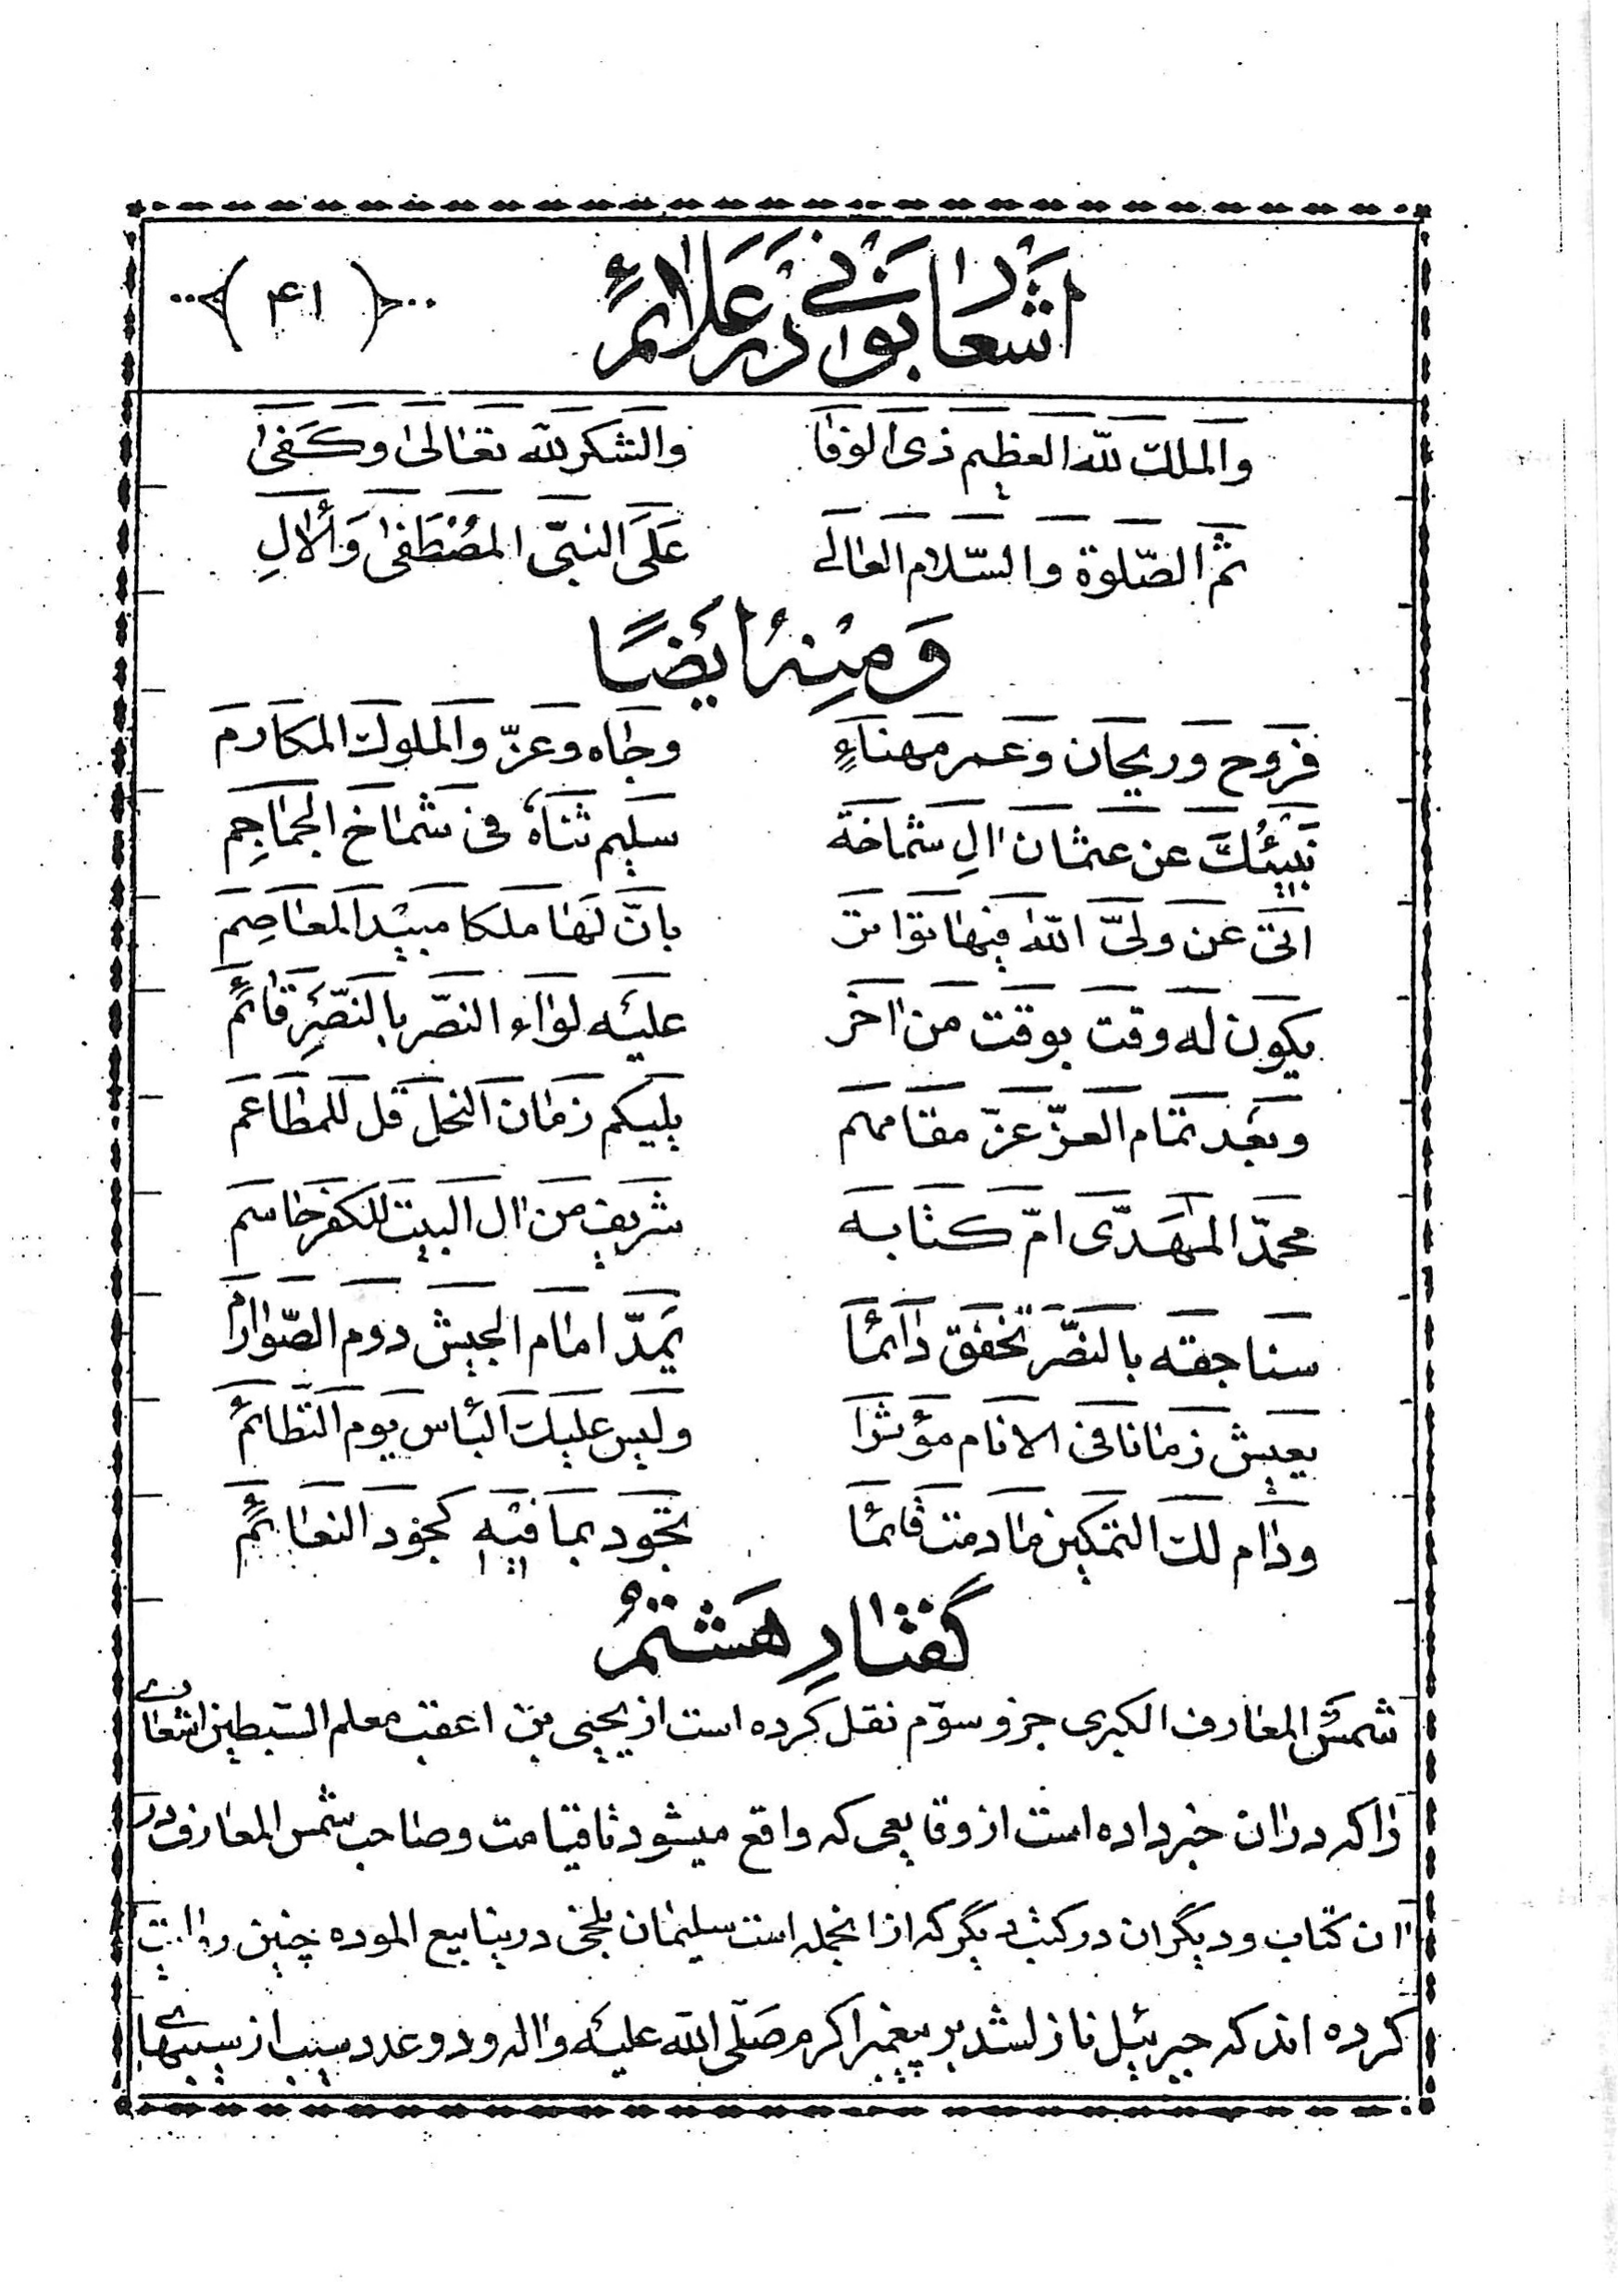 اشعار بونی در علائم
﴿ ۴۱ ﴾
والملك لله العظیم ذی الوفا والشکر لله تعالیٰ وکَفیٰ
ثم الصّلوة والسّلام العالی عَلَی النبیّ المُصْطَفیٰ وَألالِ
وَمِنْهُ اَیْضًا
فروح وریحان وعمر مهناءٍ وجاه وعزّ والملوك المکارم
نبیئُكَ عن عثمان الِ شماخة سلیم ثناهُ فی شماخ الجماجِمِ
اتی عن ولیّ الله فیها تواتر بانّ لها ملکا مبید المعاصِم
یکون له وقت بوقت من اخر علیه لواء النصّر بالنصّرِ قائم
وبعد تمام العزّ عزّ مقامهم یلیکم زمان النحل قل للمطاعم
محمدّ المهدی امّ کتابه شریف من ال البیت للکفر حاسم
سناجقه بالنصّر تخفق دائما یمدّ امام الجیش دوم الصّوارم
یعیش زمانا فی الانام مؤثرا ولیس علیك البأس یوم التّظائم
ودام لك التمکین مادمت قائما تجود بما فیهِ کجود النعائم
گفتارِ هَشتمُ
شمس المعارف الکبری جزو سوّم نقل کرده است از یحیی بن اعقب معلم السبطین اشعاری
را که در ان خبر داده است از وقایعی که واقع میشود تا قیامت وصاحب شمس المعارف در
ان کتاب ودیگران در کتب دیگر که از انجمله است سلیمان بلخی در ینابیع الموده چنین روایت
کرده اند که جبرئیل نازل شد بر پیغمبر اکرم صَلّی الله علیه واله ودو عدد سیب از سیبهای